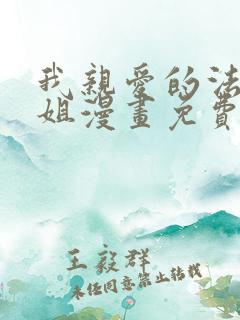 我親愛的法
姐漫畫免費
王毅群
未經同意禁止轉載